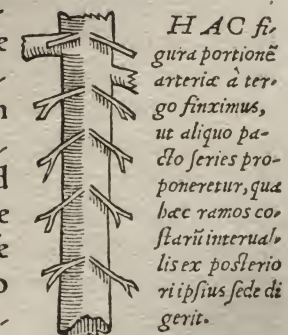 HAC fi-
gura portionẽ
arteriæ à ter-
go finximus,
ut aliquo pa-
cto ſeries pro-
poneretur, qua
hæc ramos co-
ſtarũ interual-
lis ex poſterio
ri ipſius ſede di
gerit.